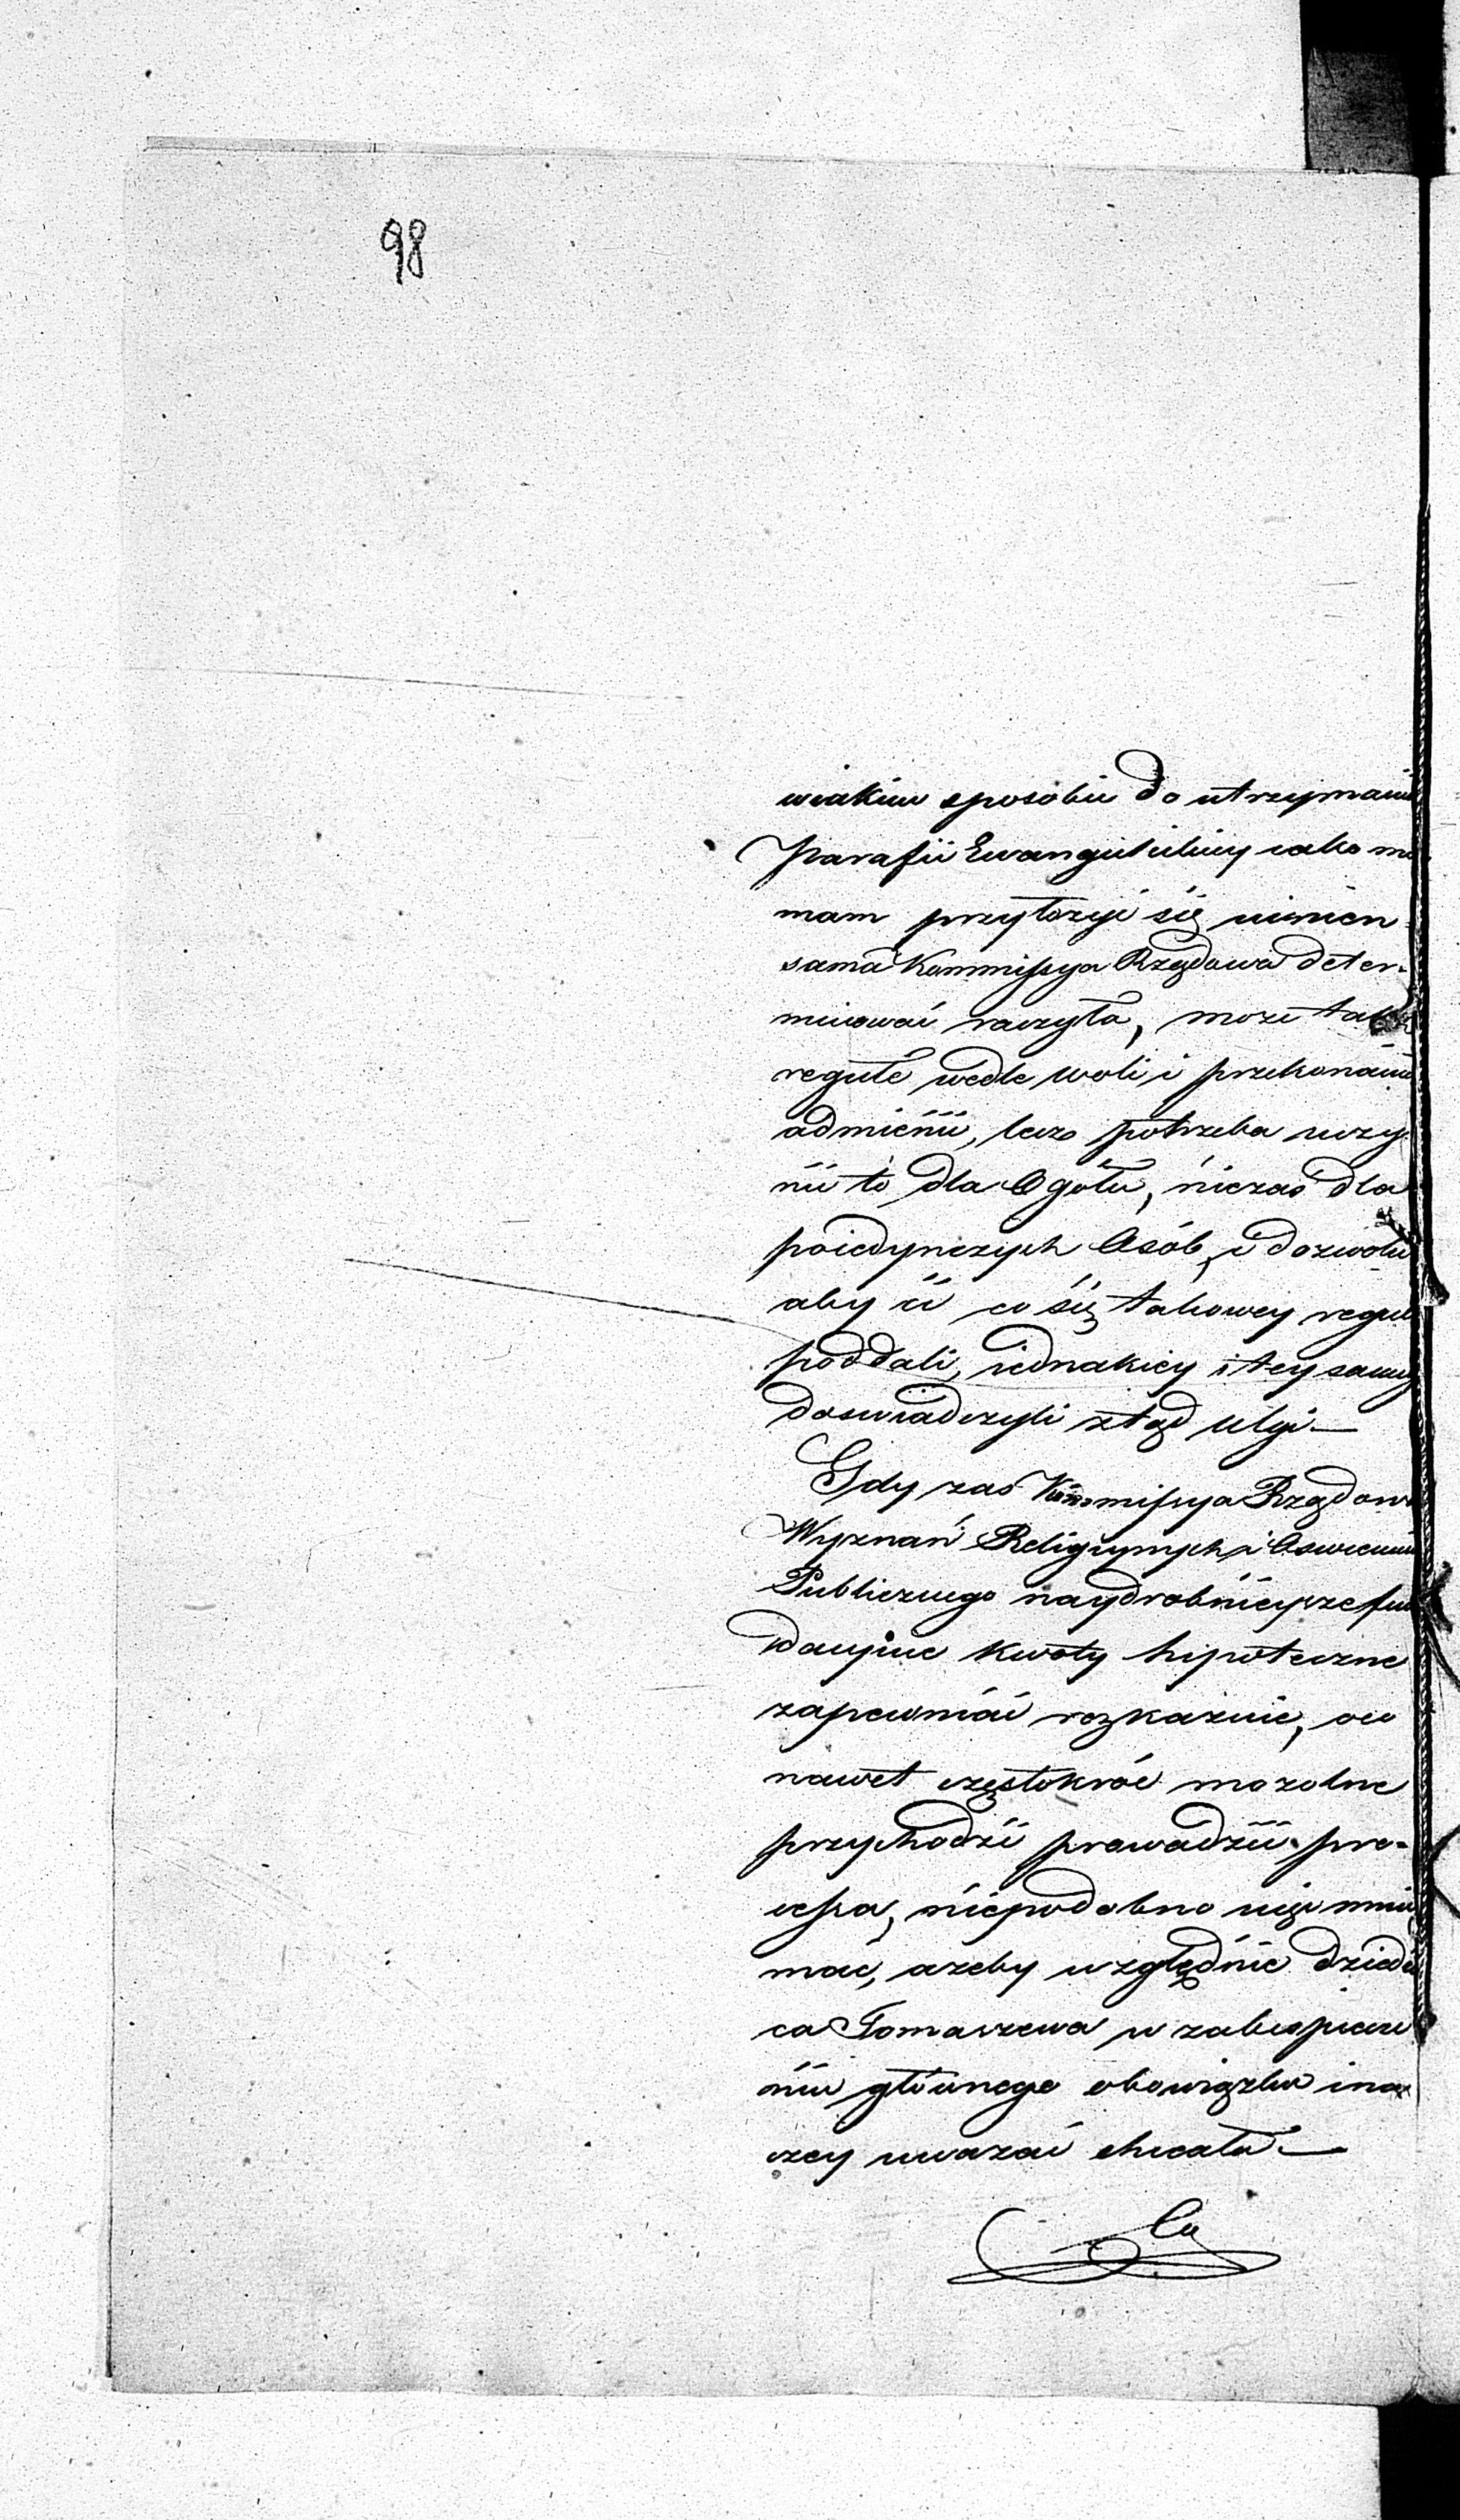 98
wiakim sposobie do utrzymania
Parafii Ewangielickiey iako
mam przyłożyć się winien
sama Kommissya Rządowa deter-
minować raczyła, może
regułe wedle woli i przekonania
odmienić, lecz potrzeba uczy
nić to dla Ogółu, niezaś dla
poiedynczych Osób, i dozwolić
aby ci co się takowey regule
poddali, iednakiey i tey samey
doswiadczyli ztąd ulgi —
Gdy zaś Kommissya Rządowa
Wyznań Religiynych i Oswiecenia
Publicznego naydrobnieysze fun
dacyine kwoty hipoteczne
zapewniać rozkazuie, 
nawet częstokroć mozolne
przychodzi prowadzić pro-
cessa, niepodobno więc mnie
mać, azeby względnie dziedzi
ca Tomaszewa w zabespiecze
niu głównego obowiązku ina
czey uwazać chciała —
Co